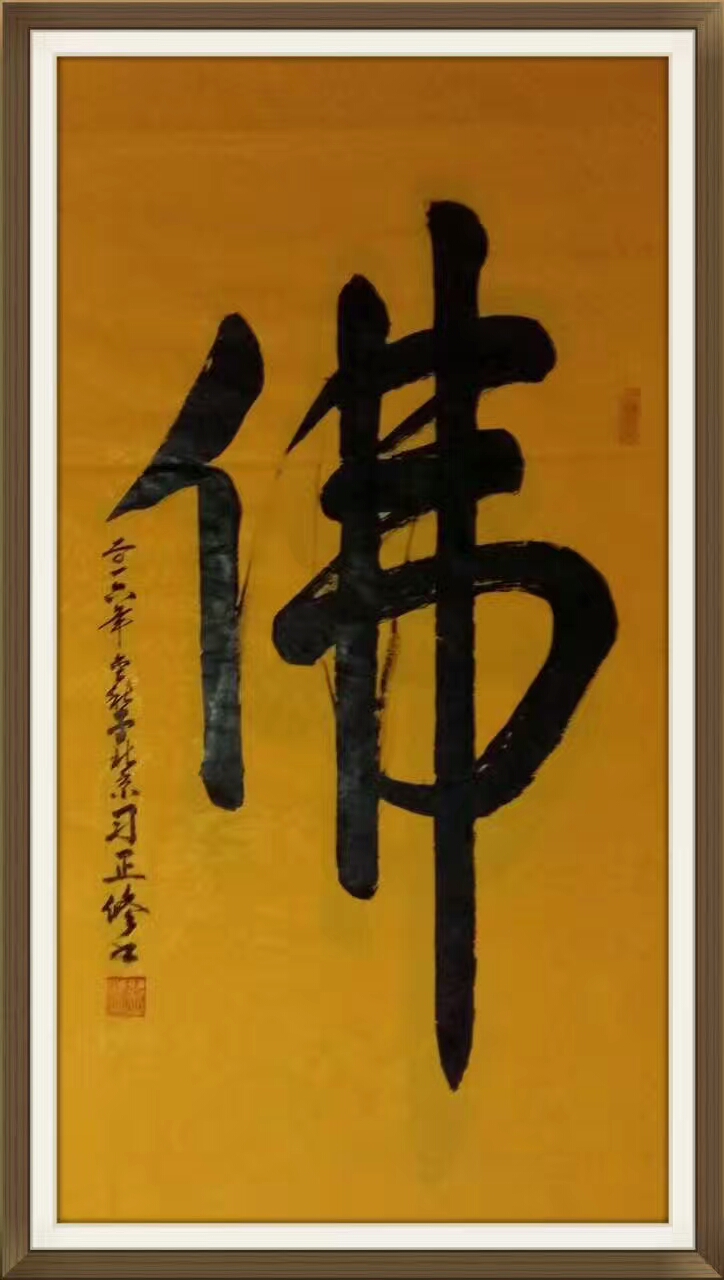 佛
二〇一六年 于北京习正修书